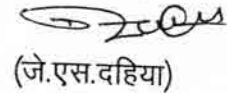 (जे.एस.दहिया)